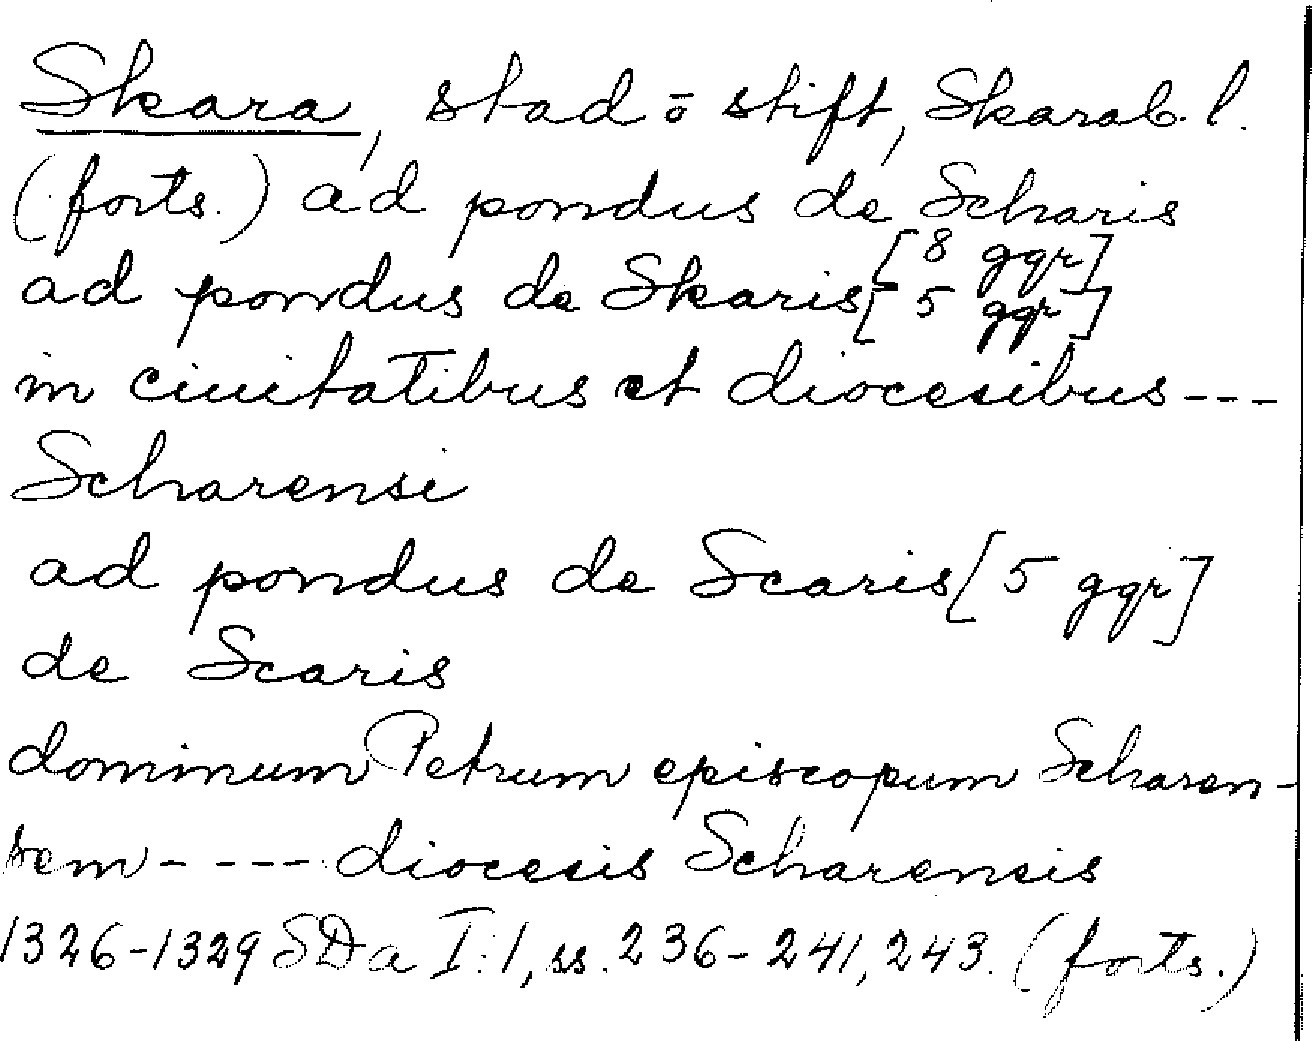 Skara, stad o stift, Skarab. l.
(forts.) ad pondus de Scharis
[8 ggr]
ad pondus de Skaris [5 ggr]
in ciuitatibus et diocesibus ---
Scharensi
ad pondus de Scaris [5 ggr]
de Scaris
dominum Petrum episcopum Scharen-
sem - --- diocesis Scharensis
1326-1329 SDa I:1, ss. 236-241, 243. (forts.)